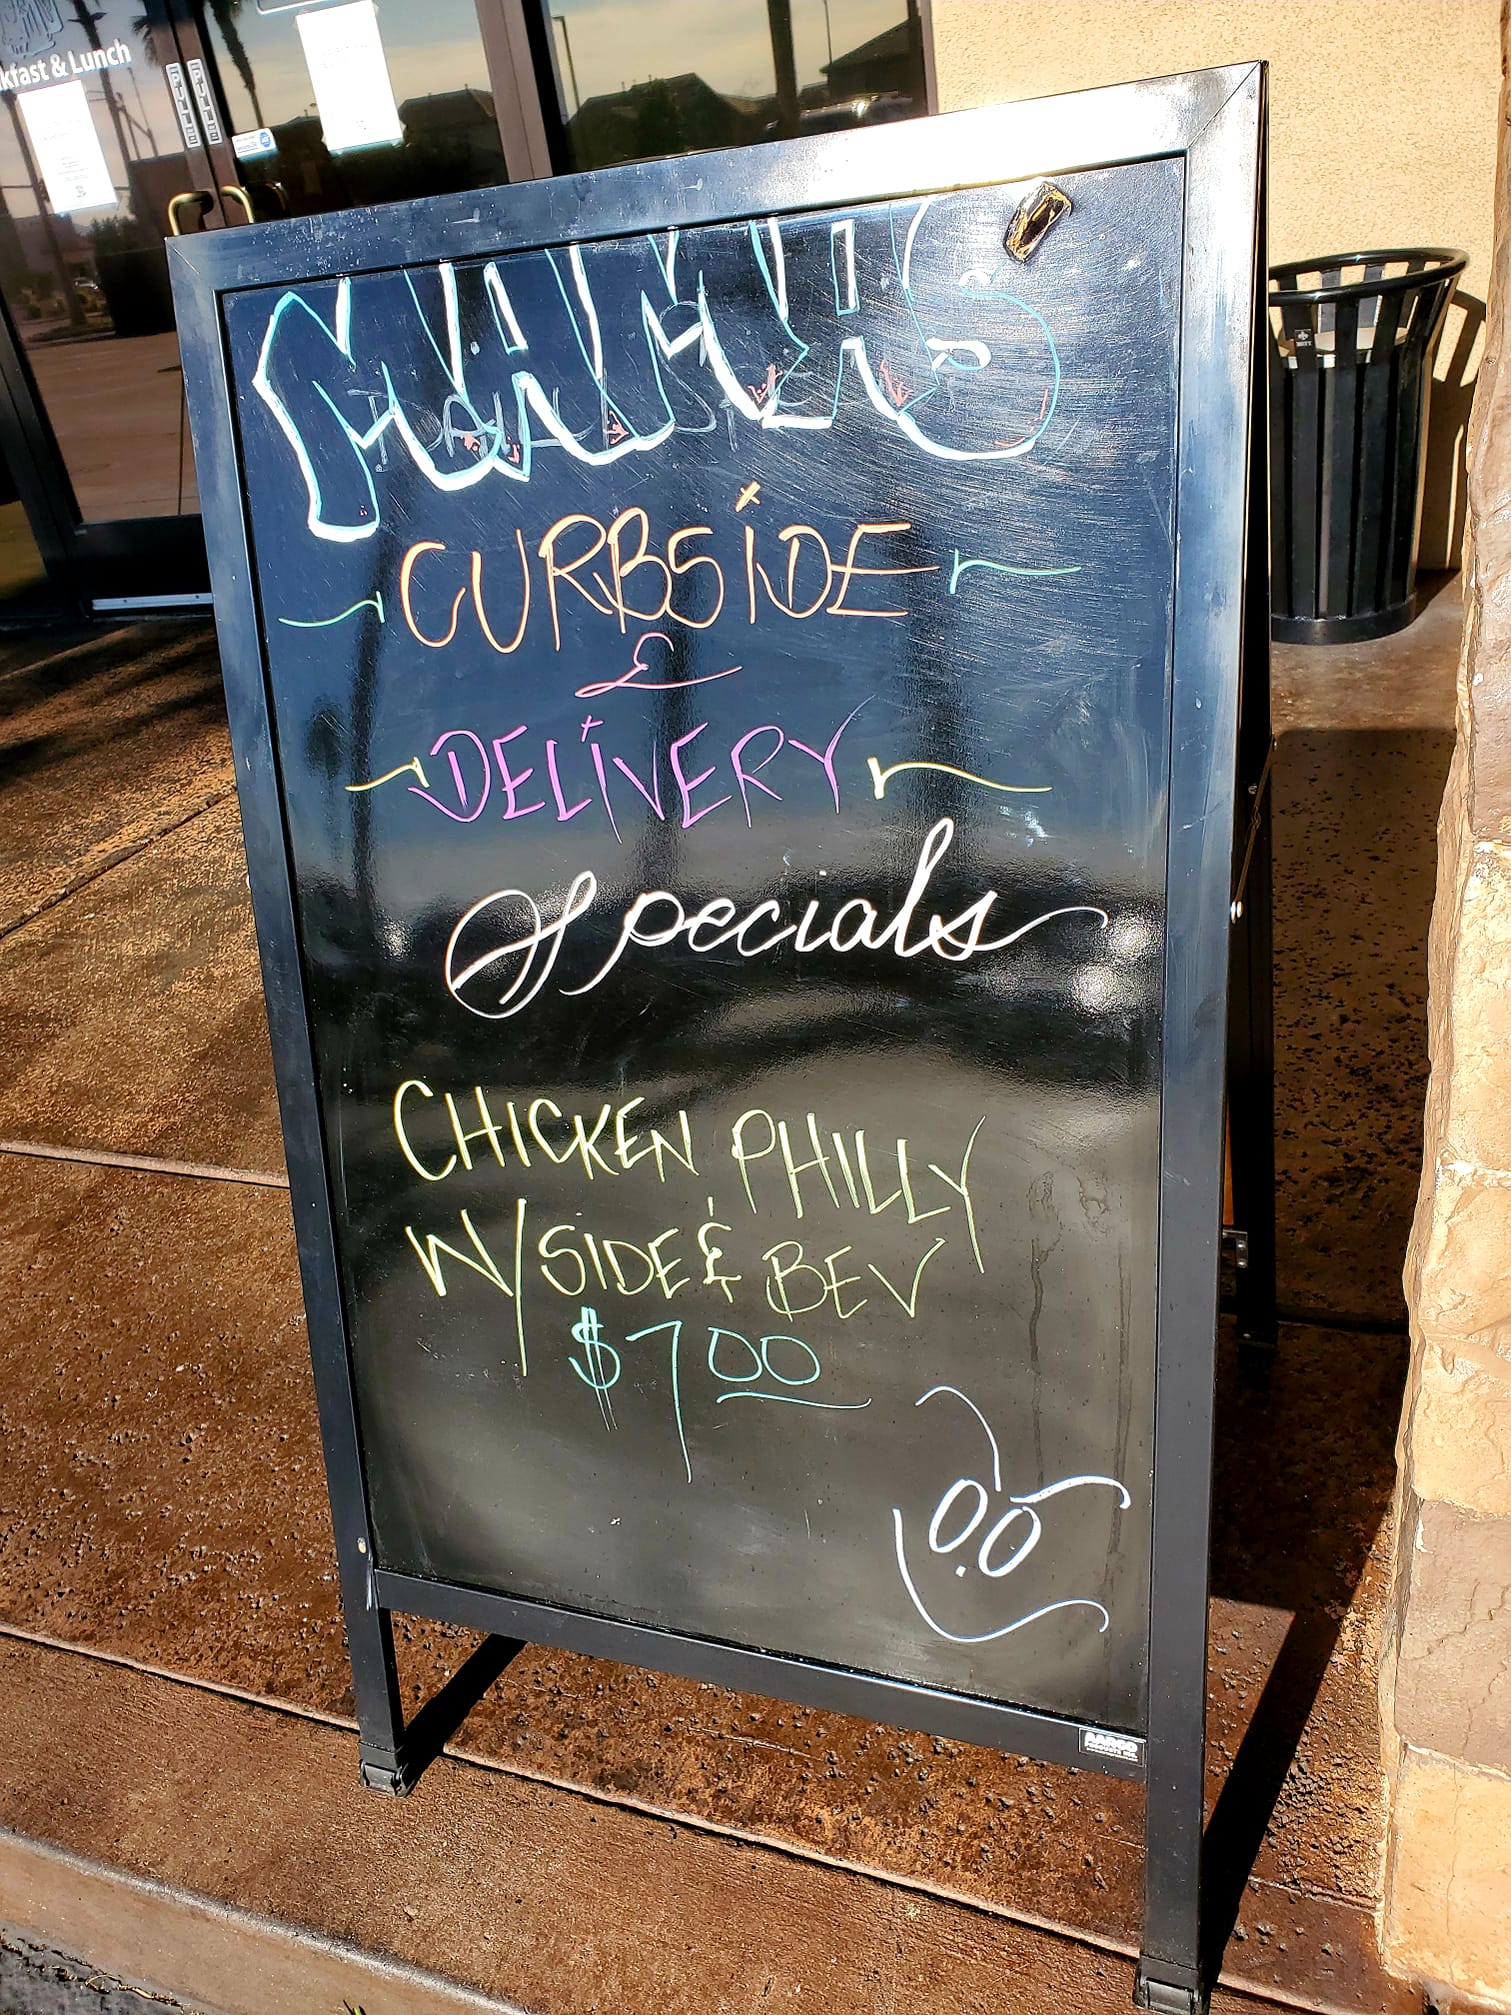 kfast & Lunch
PULL
PULL
MAMAS
CURBSIDE
&
DELIVERY
Specials
CHICKEN PHILLY
W/SIDE & BEV
$7.00